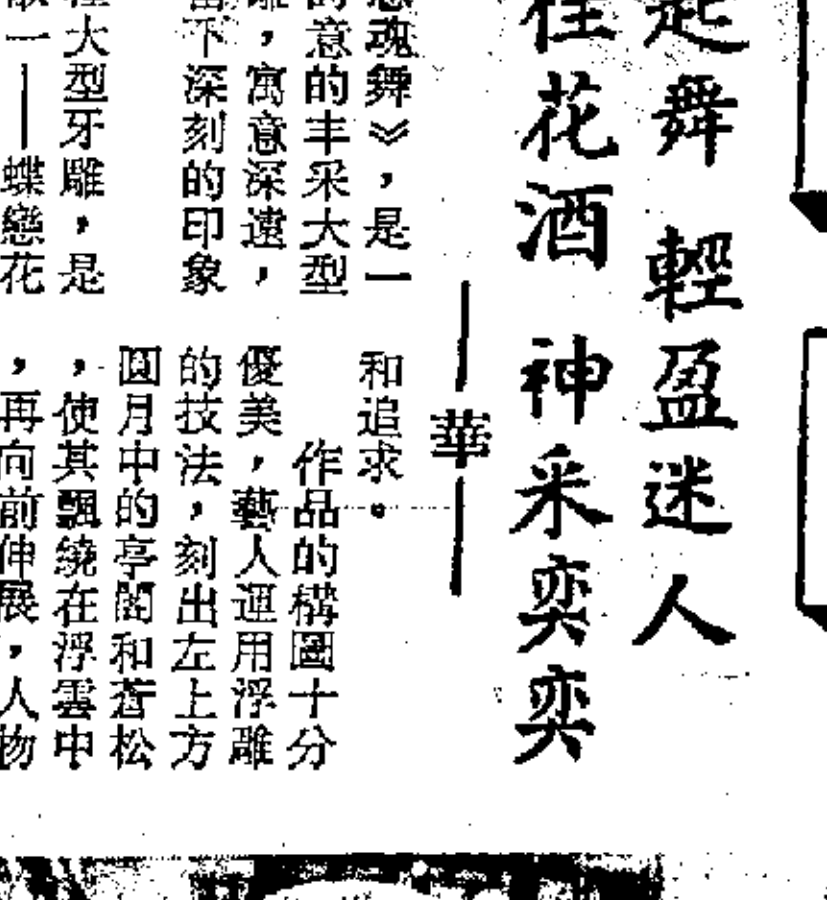 舞 輕盈迷人
花酒 神采奕奕
華
魂舞》，是一
意的丰采大型
，寓意深遠，
下深刻的印象
大型牙雕，是
一——蝶戀花
和追求。
作品的構圖十分
優美，藝人運用浮雕
的技法，刻出左上方
圓月中的亭閣和蒼松
，使其飄繞在浮雲中
，再向前伸展，人物